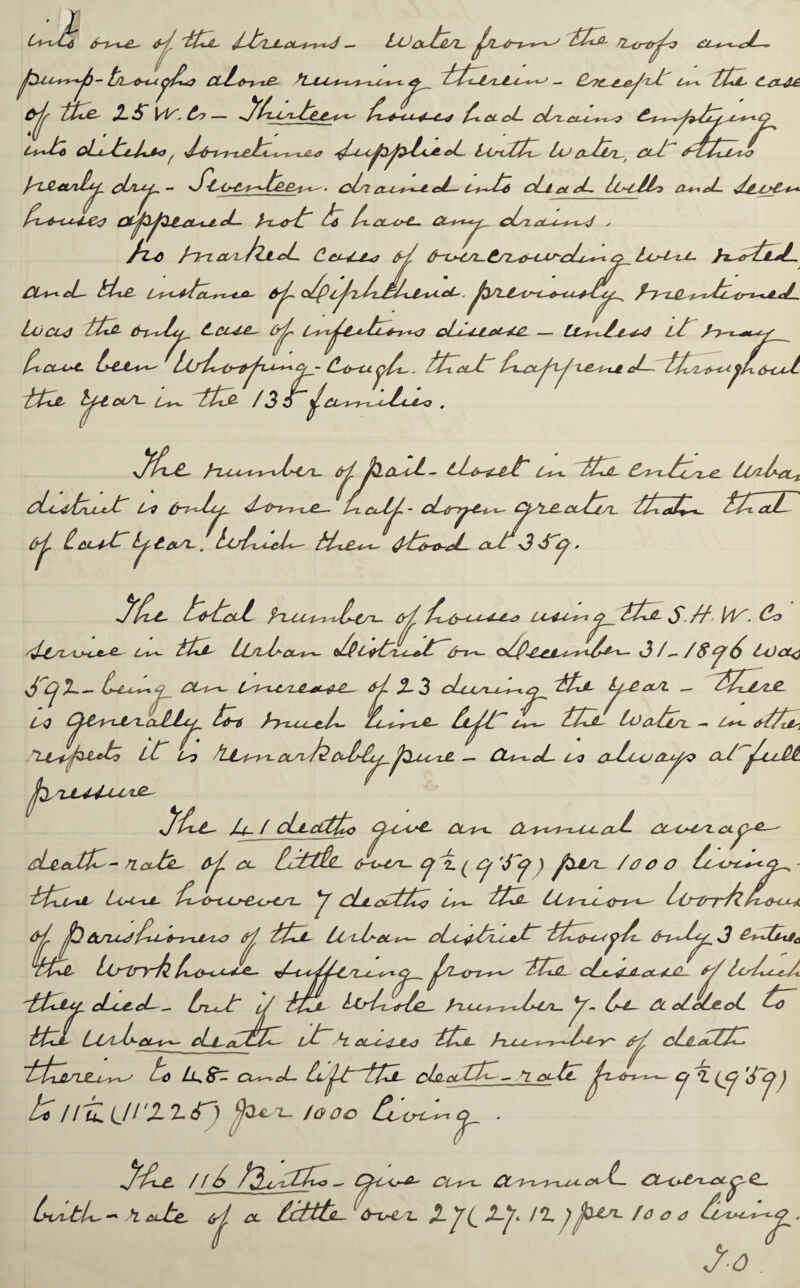 into one of the streams — Water from the roofs and
pump-troughs alone running therein — except in the case
of the 25 W. Co — Thirteen houses had drains emptying
into ditches, sometimes supplied with water, at others
nearly dry. — Seventeen drained into dead wells and seven
houses appeared not to have any drains.
No marked cases of overcrowding were noted
and the instance of Diphtheria previously mentioned
was the only case of infectious disease — unless it may
have been Whooping-Cough. that happened throughout
the year in the 13 families.
The number of pail-closet in the entire Urban
district is only some half-dozen greater than that
of last year, which then stood at 359.
The total number of houses using the S.H. W. Co
service in the Urban District on December 31-1896 was
892 — being an increase of 23 during the year — There
is generally too much lime left in the water — in other
respects it is remarkably pure — and is always at full
pressure
The 41 deaths give an annual average
death-rate of a little over 9½ (9.59) per 1000 living —
there were however 7 deaths in the Union Workhouse
of persons of the Urban district though only 3 entered
the Workhouse suffering from the disease of which
they died — but if the whole number 7 — be added to
the Urban death it raises the number of death
therein to 48 — and lift the death-rate from 9½ (9.59)
to 11¼ (11.225) per 1000 living .
The 116 Births — give an annual average
birth-rate of a little over 27 (27.12) per 1000 living.
To